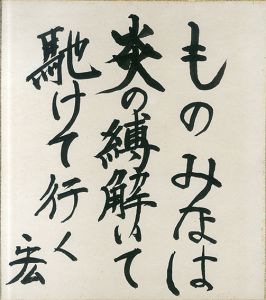 ものみなは
炎の縛解いて
馳けて行く
宏